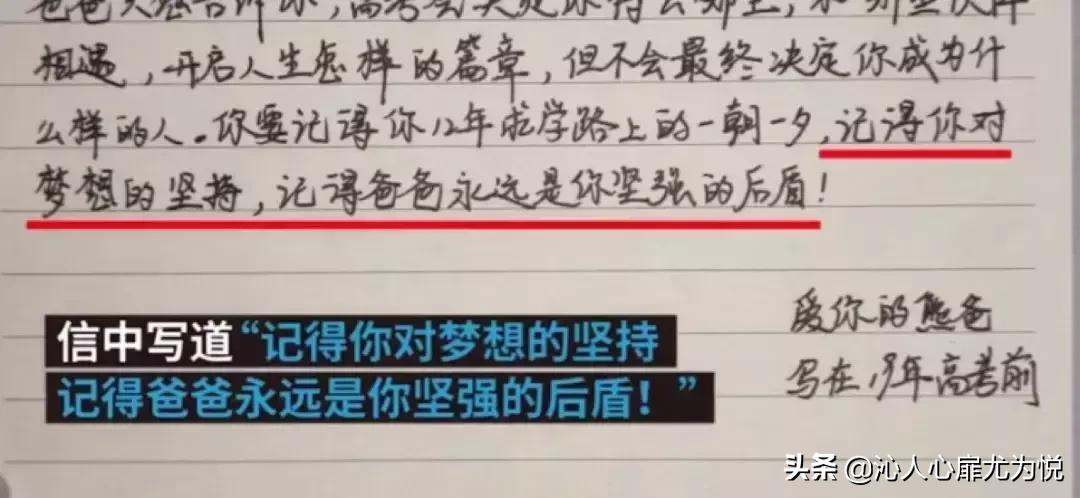 相遇，开启人生怎样的篇章，但不会最终决定你成为什
么样的人。你要记得你12年求学路上的一朝一夕，记得你对
梦想的坚持，记得爸爸永远是你坚强的后盾！
爱你的熊爸
写在19年高考前
信中写道“记得你对梦想的坚持
记得爸爸永远是你坚强的后盾！”
头条 @沁人心扉尤为悦